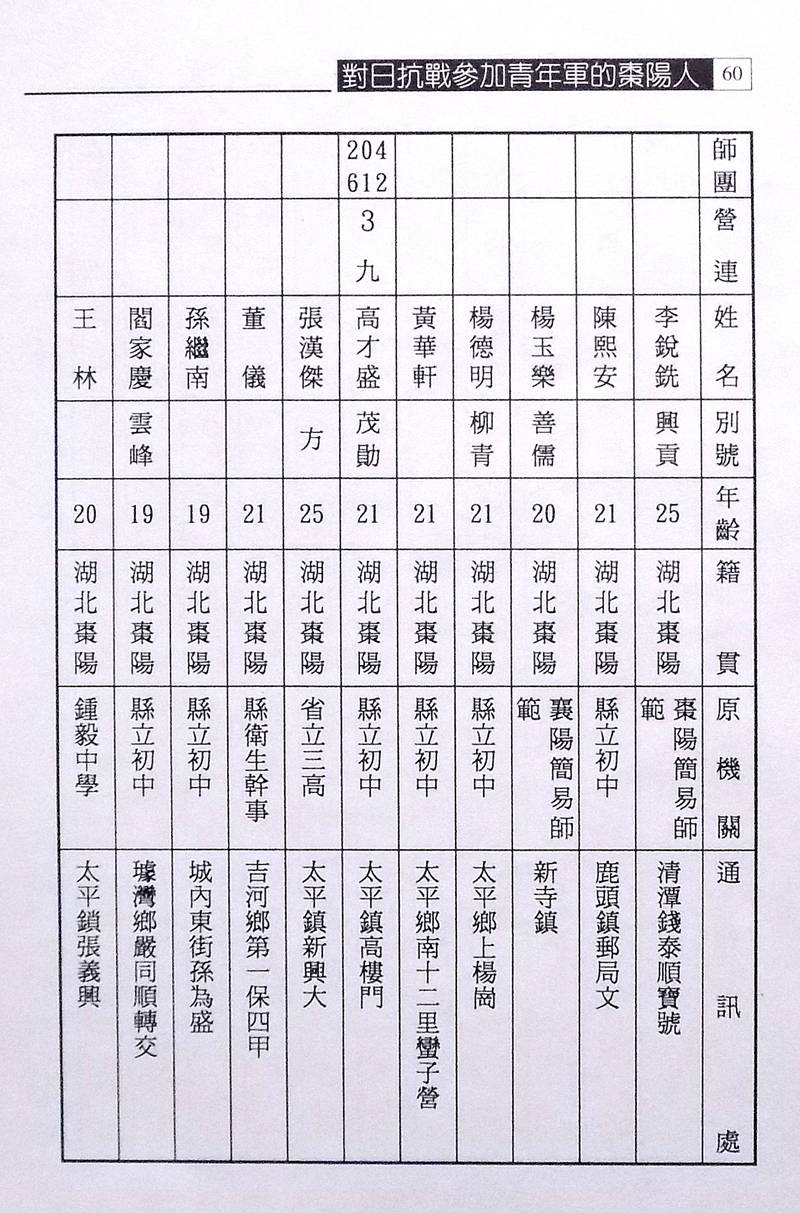 對日抗戰參加青年軍的棗陽人 60
師團
營連
姓名
別號
年齡
籍貫
原機關
通訊處
李銳銑
興貢
25
湖北棗陽
棗陽簡易師
範
清潭錢泰順寶號
陳熙安
21
湖北棗陽
縣立初中
鹿頭鎮郵局文
楊玉樂
善儒
20
湖北棗陽
襄陽簡易師
範
新寺鎮
楊德明
柳青
21
湖北棗陽
縣立初中
太平鄉上楊崗
黃華軒
21
湖北棗陽
縣立初中
太平鄉南十二里蠻子營
204
612
3
九
高才盛
茂勛
21
湖北棗陽
縣立初中
太平鎮高樓門
張漢傑
方
25
湖北棗陽
省立三高
太平鎮新興大
董儀
21
湖北棗陽
縣衛生幹事
吉河鄉第一保四甲
孫繼南
19
湖北棗陽
縣立初中
城內東街孫為盛
閻家慶
雲峰
19
湖北棗陽
縣立初中
璩灣鄉嚴同順轉交
王林
20
湖北棗陽
鍾毅中學
太平鎖張義興